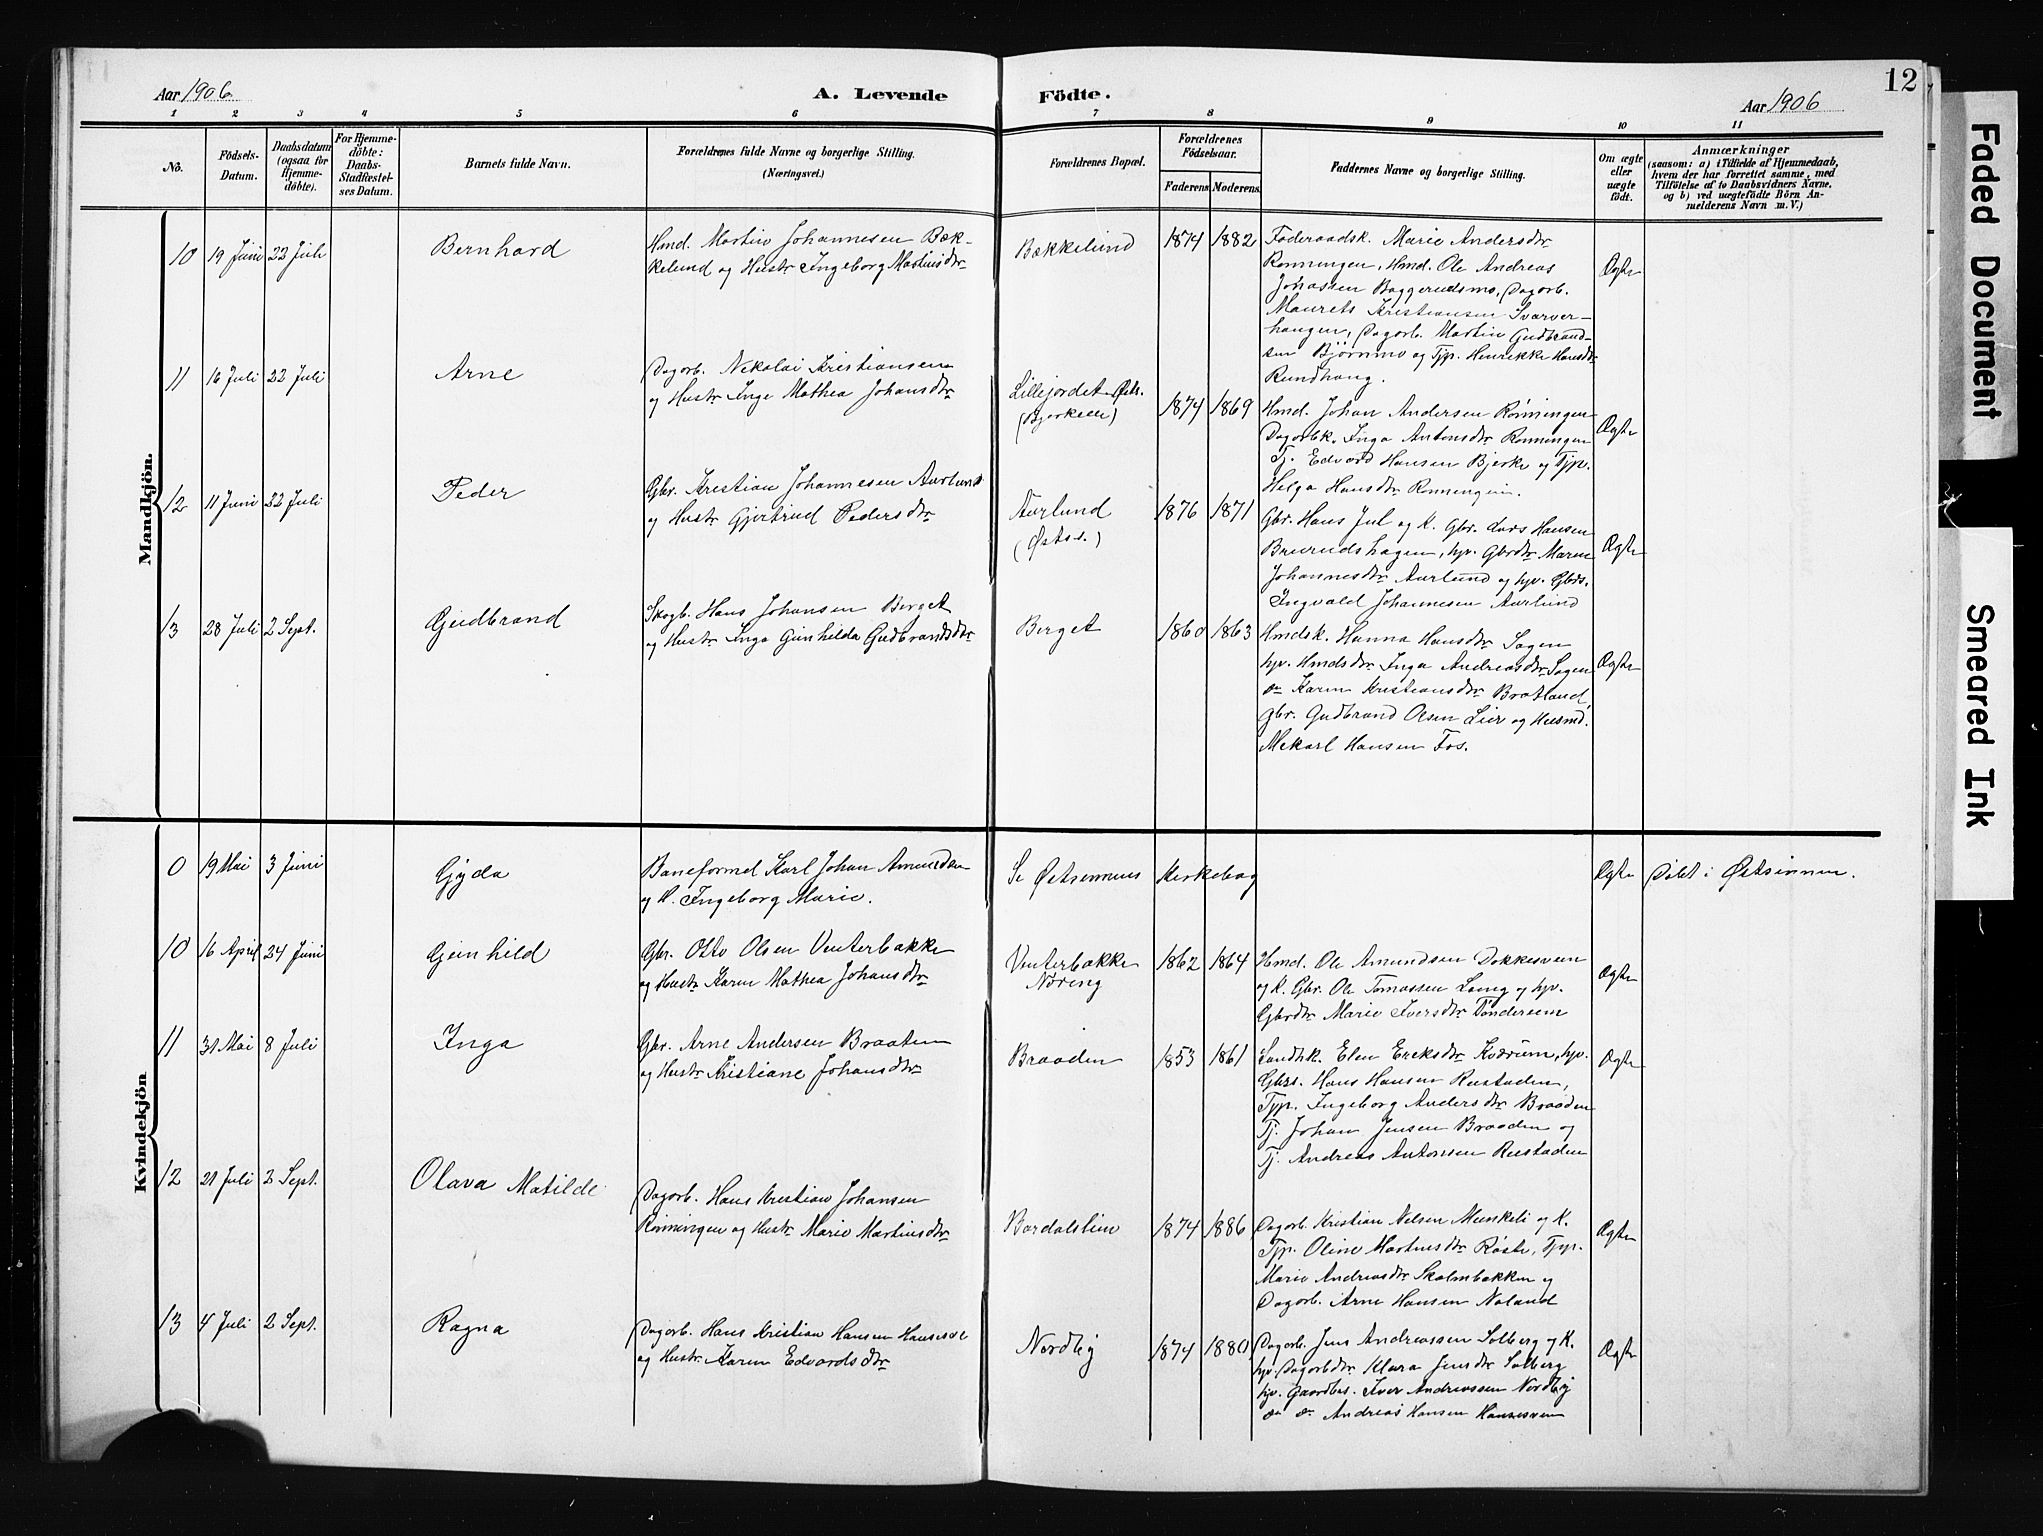 Aar 1906
A. Levende
Födte.
Aar 1906
12
1 2 3 4 5 6 7 8 9 10 11
No.
Födsels-
Datum.
Daabsdatum
(ogsaa for
Hjemme-
döbte).
For Hjemme-
döbte:
Daabs-
Stadfæstel-
ses Datum.
Barnets fulde Navn.
Forældrenes fulde Navne og borgerlige Stilling.
(Næringsvei.)
Forældrenes Bopæl.
Forældrenes
Födselsaar.
Faderens
Moderens
Faddernes Navne og borgerlige Stilling.
Om ægte
eller
uægte
födt.
Anmærkninger
(saasom: a) i Tilfælde af Hjemmedaab,
hvem der har forrettet samme, med
Tilföielse af to Daabsvidners Navne,
og b) ved uægtefödte Börn An-
melderens Navn m. V.)
Mandkjön.
10 19 Juni 22 Juli
Bernhard
Hmd. Martin Johannesen Bæk-
kelund og Hustr Ingeborg Martinsdtr
Bækkelund
1874 1882
Föderaadsk. Marie Andersdtr
Rönningen, Hmd. Ole Andreas
Johassen Baggerudsmo, Dagarb.
Maurets Kristiansen Svarver-
haugen, Dagarb. Martin Gudbrand-
sen Björnmo og Tjp. Henrikke Hansdtr
Rundhaug.
Ægte
11 16 Juli 22 Juli
Arne
Dagarb. Nikolai Kristiansen
og Hustr Inge Mathea Johansdtr
Lillejordet Østs.
(Bjerkelie)
1874 1869
Hmd. Johan Andersen Rönningen
Dagarbk. Inga Antonsdtr Rönningen
Tj. Edvard Hansen Bjerke og Tjp.
Helga Hansdtr Rönningen.
Ægte
12 11 Juni 22 Juli
Peder
Gbr. Kristian Johannesen Aurlund
og Hustr Gjertrud Pedersdtr
Aurlund
(Østs.)
1876 1871
Gbr. Hans Jul og K. Gbr. Lars Hansen
Bruruds hagen, hjv. Gbrdtr Maren
Johannesdtr Aurlund og hjv. Gbrs.
Ingvald Johannesen Aurlund
Ægte
13 28 Juli 2 Sept.
Gudbrand
Skogb. Hans Johansen Berget
og Hustr Inga Gunhilda Gudbrandsdtr
Berget
1860 1863
Hmdsk. Hanna Hansdtr Sagen
hjv. Hmdsdtr Inga Andreasdtr Sagen
do Karen Kristiansdtr Bratland,
Gbr. Gudbrand Olsen Lier og Husmd.
Mekael Hansen Fos.
Ægte
Kvindekjön
0 19 Mai 3 Juni
Gyda
Baneformd Karl Johan Amundsen
og K. Ingeborg Marie.
Se Østsinnens Kirkebog
Ægte
Döbt i Østsinnen.
10 16 April 24 Juni
Gunhild
Gbr. Otto Olsen Venterbakke
og Hustr Karen Mathea Johansdtr
Venterbakke
Nöring
1862 1864
Hmd. Ole Amundsen Dokkesvein
og K. Gbr. Ole Tomassen Laug og hjv.
Gbrdtr Marie Iversdtr Töndersem
Ægte
11 31 Mai 8 Juli
Inga
Gbr. Arne Andersen Braaten
og Hustr Kristiane Johansdtr
Braaden
1853 1861
Landhk. Elen Ereksdtr Kværum, hjv.
Gbrs. Hans Hansen Rustaden,
Tjp. Ingeborg Andersdtr Braaden
Tj. Johan Jensen Braaden og
Tj. Andreas Antonsen Rustaden
Ægte
12 21 Juli 2 Sept.
Olava Matilde
Dagarb. Hans Kristian Johansen
Rönningen og Hustr Marie Martinsdtr
Bardalslien
1874 1886
Dagarb. Kristian Nelsen Munkeli og K.
Tjp. Oline Martinsdtr Röste, Tjp.
Marie Andreasdtr Skalmbakken og
Dagarb. Arne Hansen Noland
Ægte
13 4 Juli 2 Sept.
Ragna
Dagarb. Hans Kristian Hansen
og Hustr Karen Edvardsdtr
Nordby
1874 1880
Dagarb. Jens Andreassen Solberg og K.
hjv. Dagarbdtr Klara Jensdtr Solberg
hjv. Gaardbs. Iver Andreassen Nordby
do do Andreas Hansen
Ægte
Faded Document
Smeared Ink